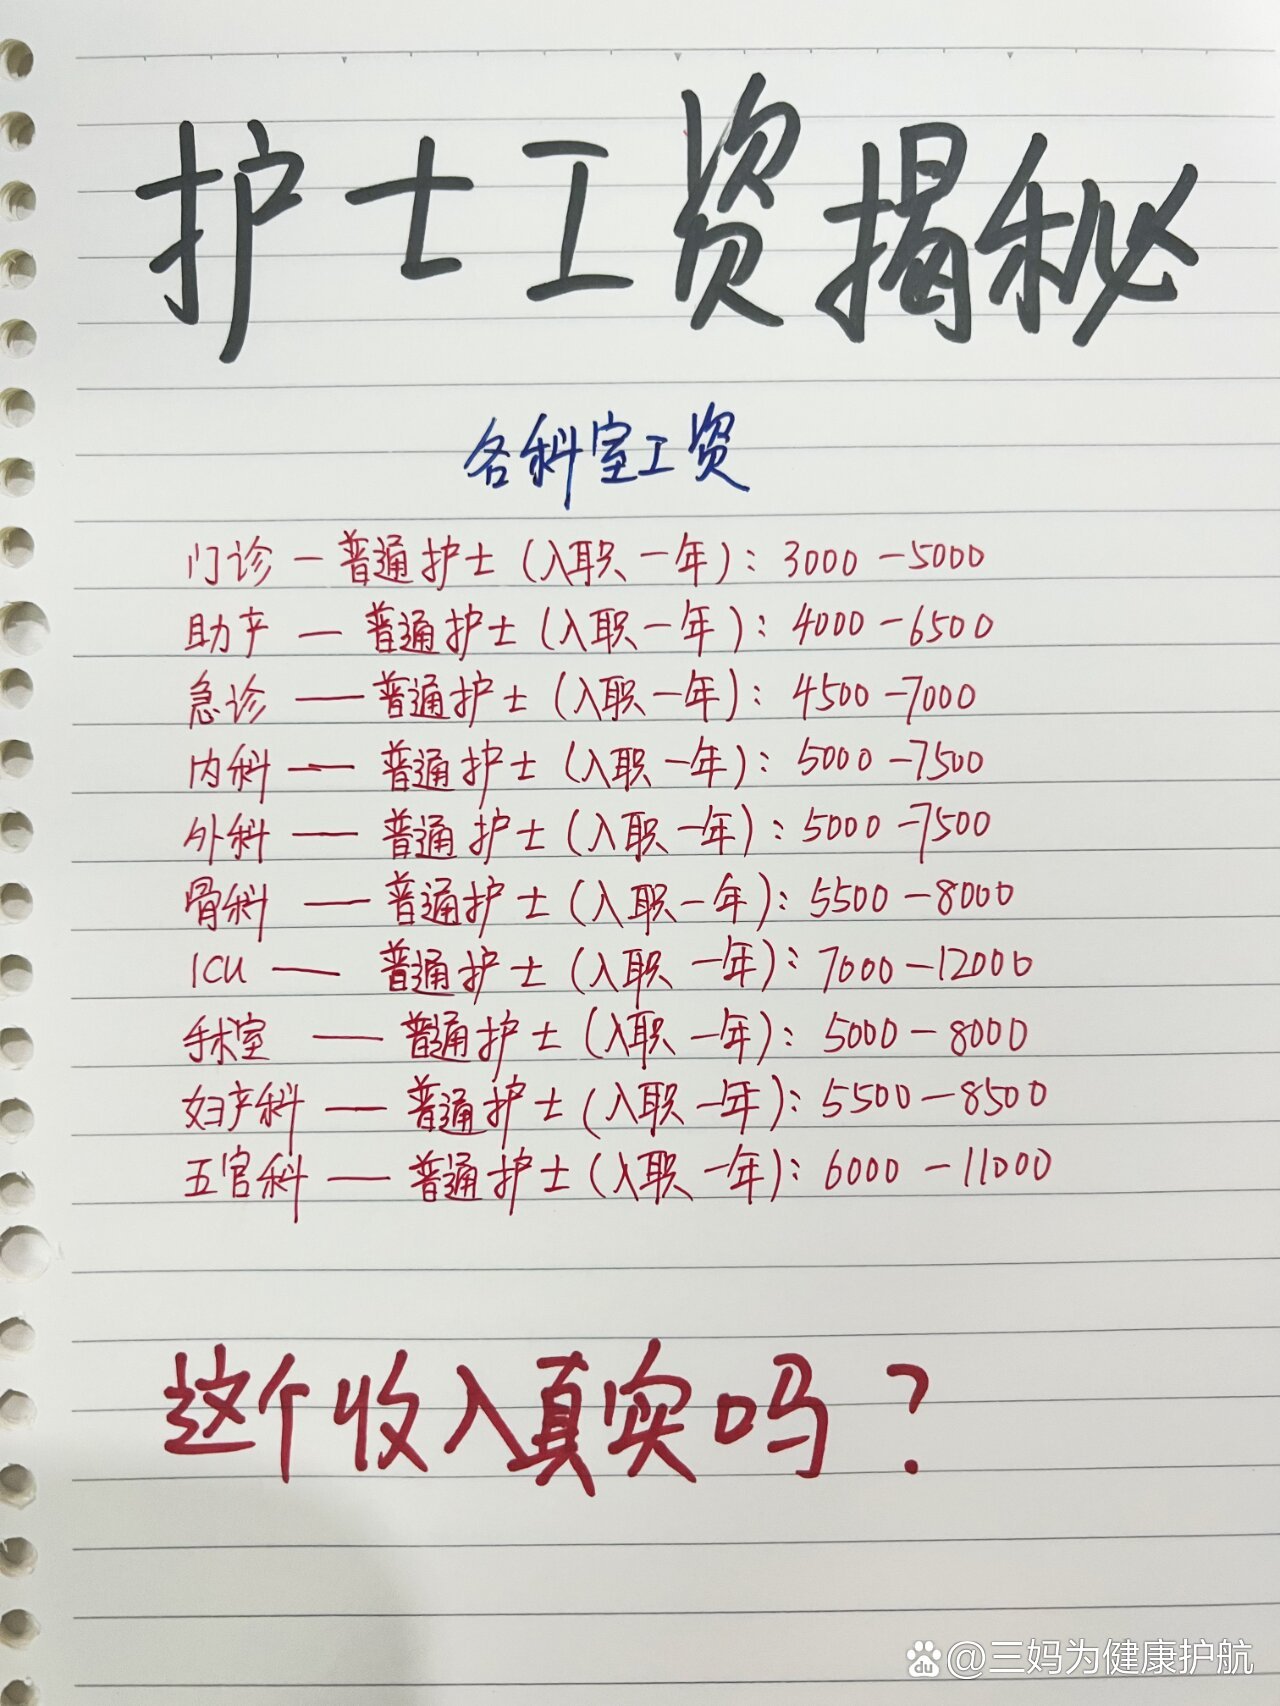 护士工资揭秘
各科室工资
门诊－普通护士（入职一年）：3000－5000
助产——普通护士（入职一年）：4000－6500
急诊——普通护士（入职一年）：4500－7000
内科——普通护士（入职一年）：5000－7500
外科——普通护士（入职一年）：5000－7500
骨科——普通护士（入职一年）：5500－8000
ICU——普通护士（入职一年）：7000－12000
手术室——普通护士（入职一年）：5000－8000
妇产科——普通护士（入职一年）：5500－8500
五官科——普通护士（入职一年）：6000－11000
这个收入真实吗？
du @三妈为健康护航